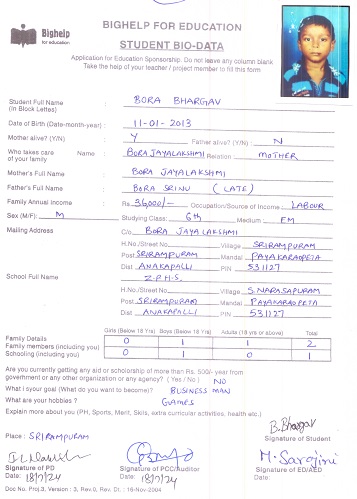 Bighelp
for education
BIGHELP FOR EDUCATION
STUDENT BIO-DATA
Application for Education Sponsorship. Do not leave any column blank.
Take the help of your teacher / project member to fill this form.
Student Full Name : BORA BHARGAV
(In Block Letters)
Date of Birth (Date-month-year) : 11-01-2013
Mother alive? (Y/N) : Y Father alive? (Y/N) : N
Who takes care of your family Name : BORA JAYALAKSHMI Relation : MOTHER
Mother's Full Name : BORA JAYALAKSHMI
Father's Full Name : BORA SRINU (LATE)
Family Annual Income : Rs. 36000/- Occupation/Source of Income : LABOUR
Sex (M/F) : M Studying Class : 6th Medium : EM
Mailing Address C/o BORA JAYALAKSHMI
H.No./Street No. Village SRIRAMPURAM
Post SRIRAMPURAM Mandal PAYAKARAOPETA
Dist ANAKAPALLI PIN 531127
School Full Name : Z.P.H.S.
H.No./Street No. Village S.NARASAPURAM
Post SRIRAMPURAM Mandal PAYAKARAOPETA
Dist ANAKAPALLI PIN 531127
Girls (Below 18 Yrs) Boys (Below 18 Yrs) Adults (18 yrs or above) Total
Family Details
Family members (including you) 0 1 1 2
Schooling (including you) 0 1 0 1
Are you currently getting any aid or scholarship of more than Rs. 500/- year from
government or any other organization or any agency? (Yes / No) NO
What is your goal (What do you want to become) BUSINESS MAN
What are your hobbies ? GAMES
Explain more about you (PH, Sports, Merit, Skills, extra curricular activities, health etc.)
B.Bhargav
Place : SRIRAMPURAM Signature of Student
M. Sarojini
Signature of PD Signature of PCC/Auditor Signature of ED/AED
Date: 18/7/24 Date: 18/7/24 Date:
Doc No. Proj.3, Version : 3, Rev.0, Rev. Dt. : 16-Nov-2004